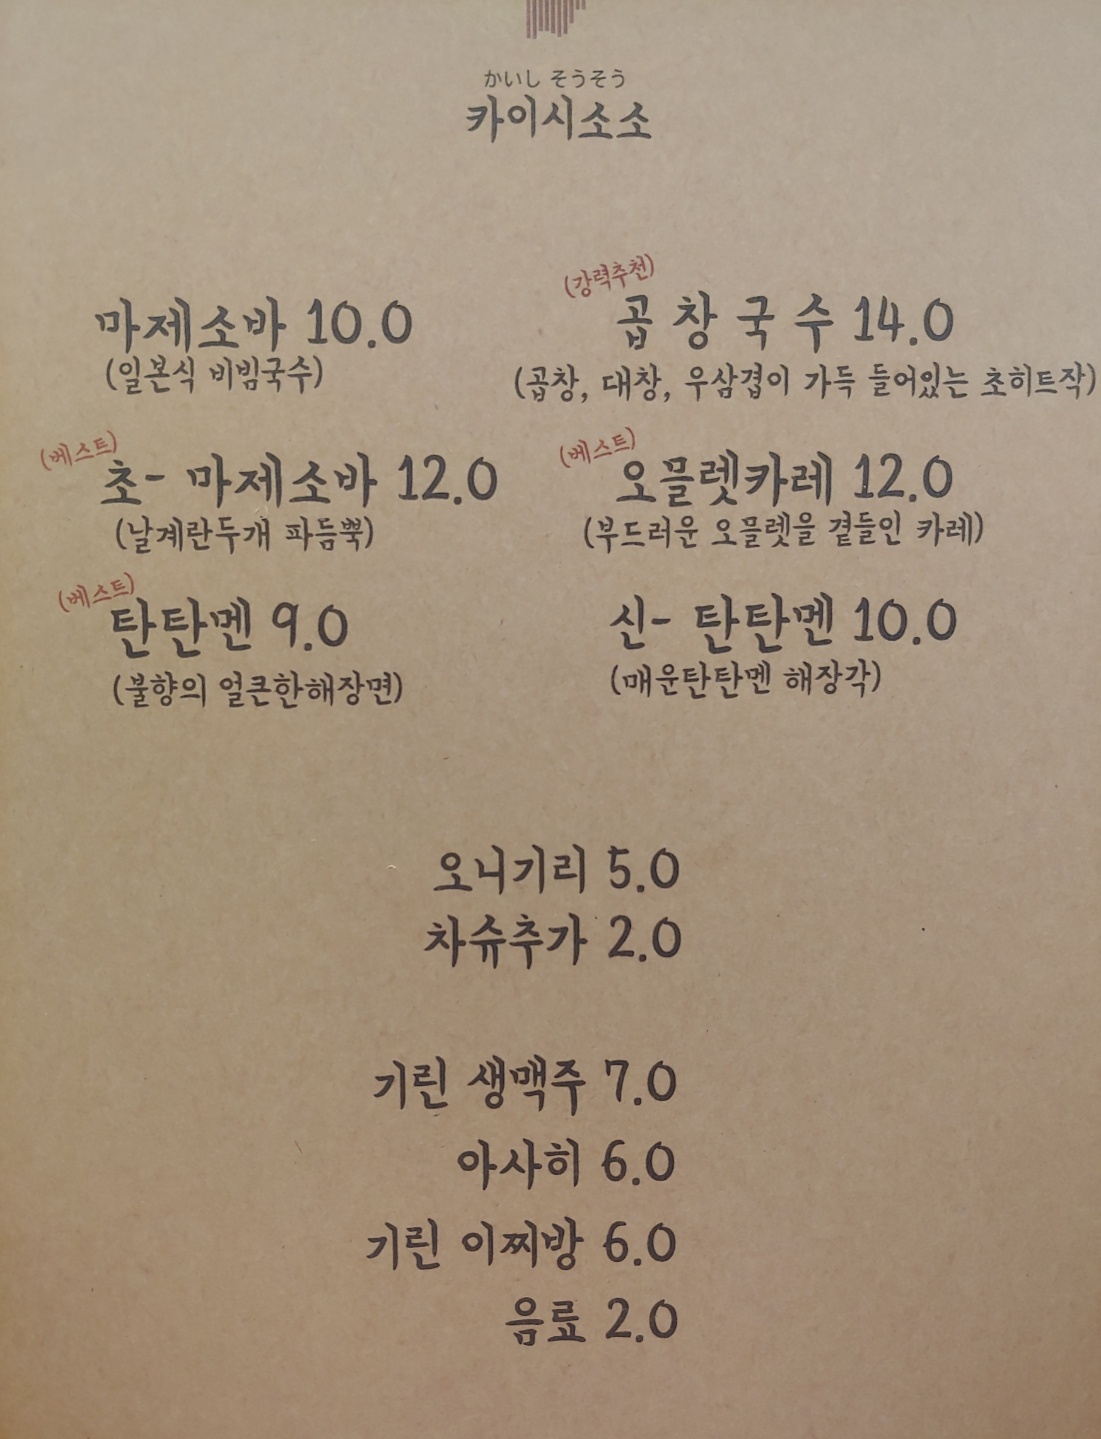 かいし そうそう
카이시소소
마제소바 10.0
(일본식 비빔국수)
(강력추천)
곱창국수 14.0
(곱창, 대창, 우삼겹이 가득 들어있는 초히트작)
(베스트)
초- 마제소바 12.0
(날계란두개 파듬뿍)
(베스트)
오믈렛카레 12.0
(부드러운 오믈렛을 곁들인 카레)
(베스트)
탄탄멘 9.0
(불향의 얼큰한해장면)
신- 탄탄멘 10.0
(매운탄탄멘 해장각)
오니기리 5.0
차슈추가 2.0
기린 생맥주 7.0
아사히 6.0
기린 이찌방 6.0
음료 2.0